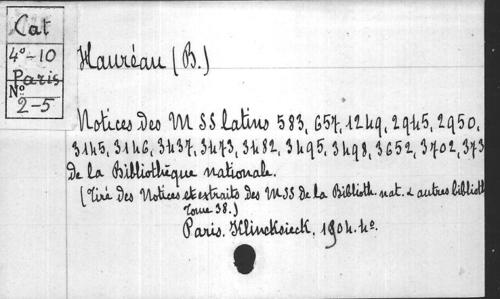 Cat
4°-10
Paris
N°
2-5
Hauréau (B.)
Notices des MSS latins 583, 657, 1249, 2945, 2950,
3145, 3146, 3437, 3473, 3482, 3495, 3498, 3652, 3702, 373
de la Bibliothèque nationale.
(Tiré des Notices et extraits des MSS de la Biblioth. nat. & autres biblioth
Tome 38.)
Paris. Klincksieck, 1904. 4°.